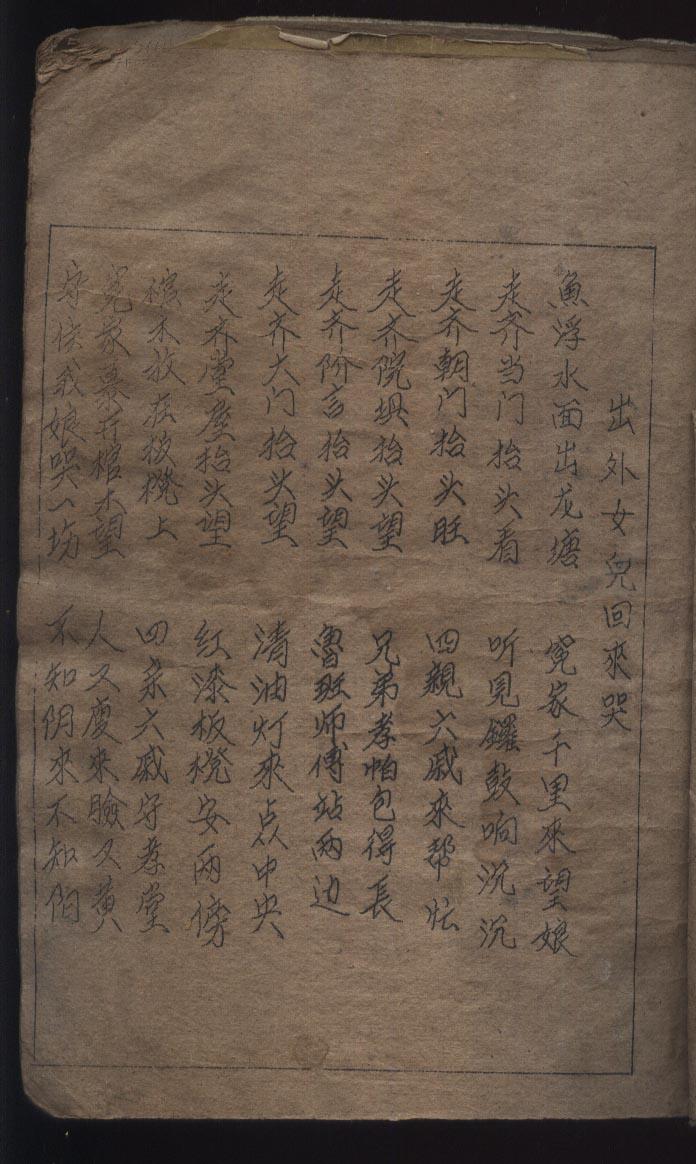 出外女兒回來哭
魚浮水面出龙塘 冤家千里來望娘
走齐当门抬头看 听見鑼鼓响沉沉
走齐朝门抬头旺 四親六戚來帮忙
走齐院坝抬头望 兄弟孝帕包得長
走齐阶言抬头望 魯班师傅站两边
走齐大门抬头望 清油灯來点中央
走齐堂屋抬头望 红漆板櫈安两傍
棺木放在板櫈上 四亲六戚守孝堂
冤家幕开棺木望 人又瘦來臉又黄
我娘哭一场 不知阴來不知阳